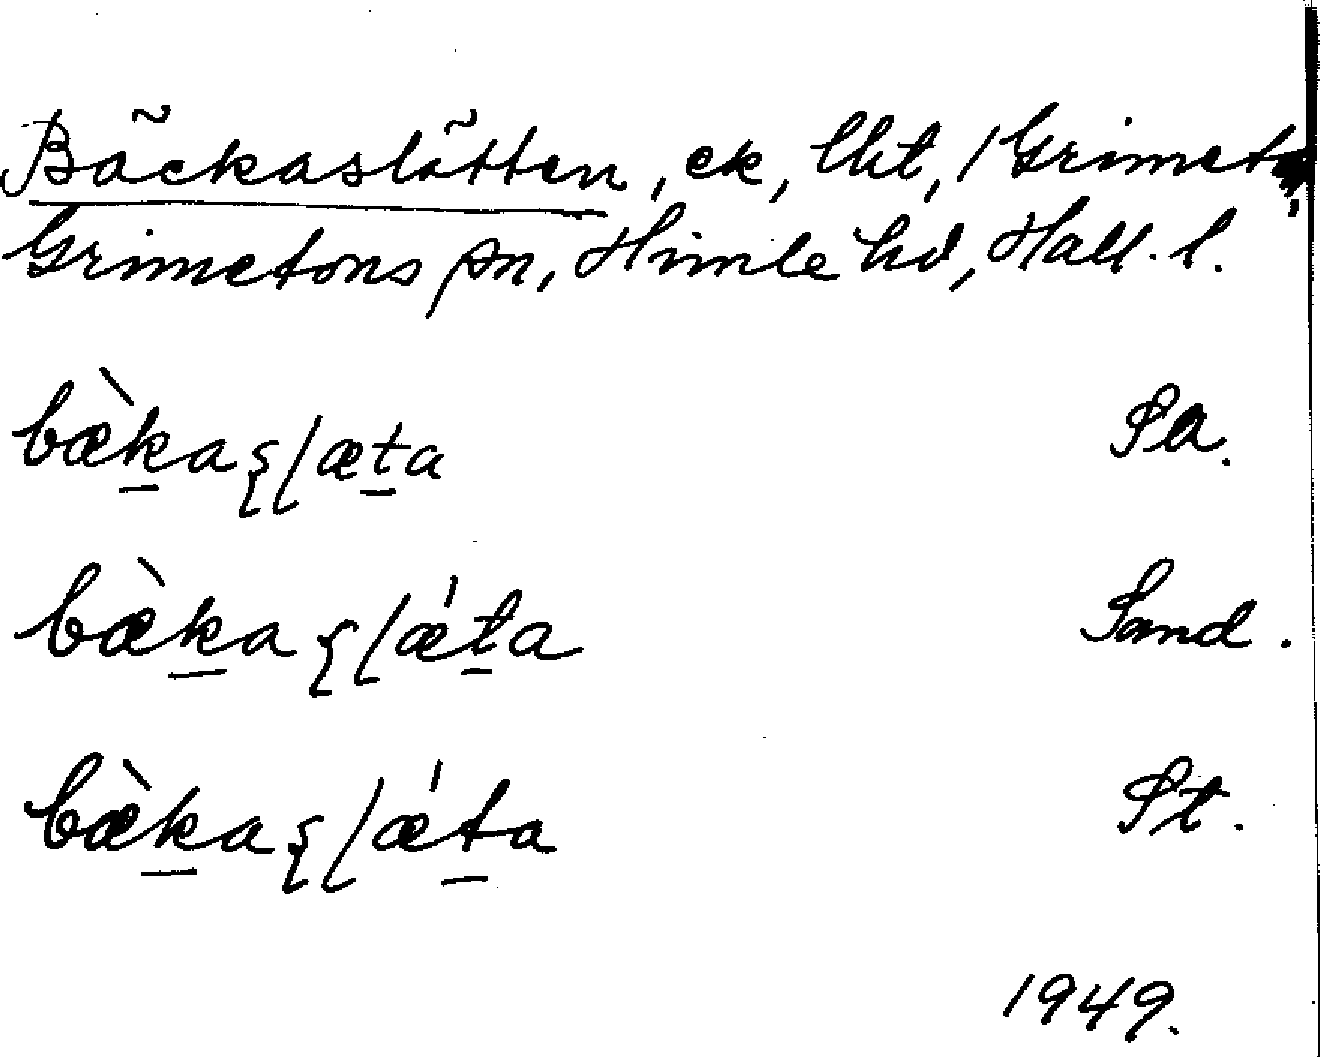 Bäckaslätten, ek, lht, 1 Grimeto
Grimetons sn, Himle hd, Hall. l.
bæ̀ḵaʂɭæṯa Sa.
bæ̀ḵaʂɭǽṯa Sand.
bæ̀ḵaʂɭǽṯa St.
1949.